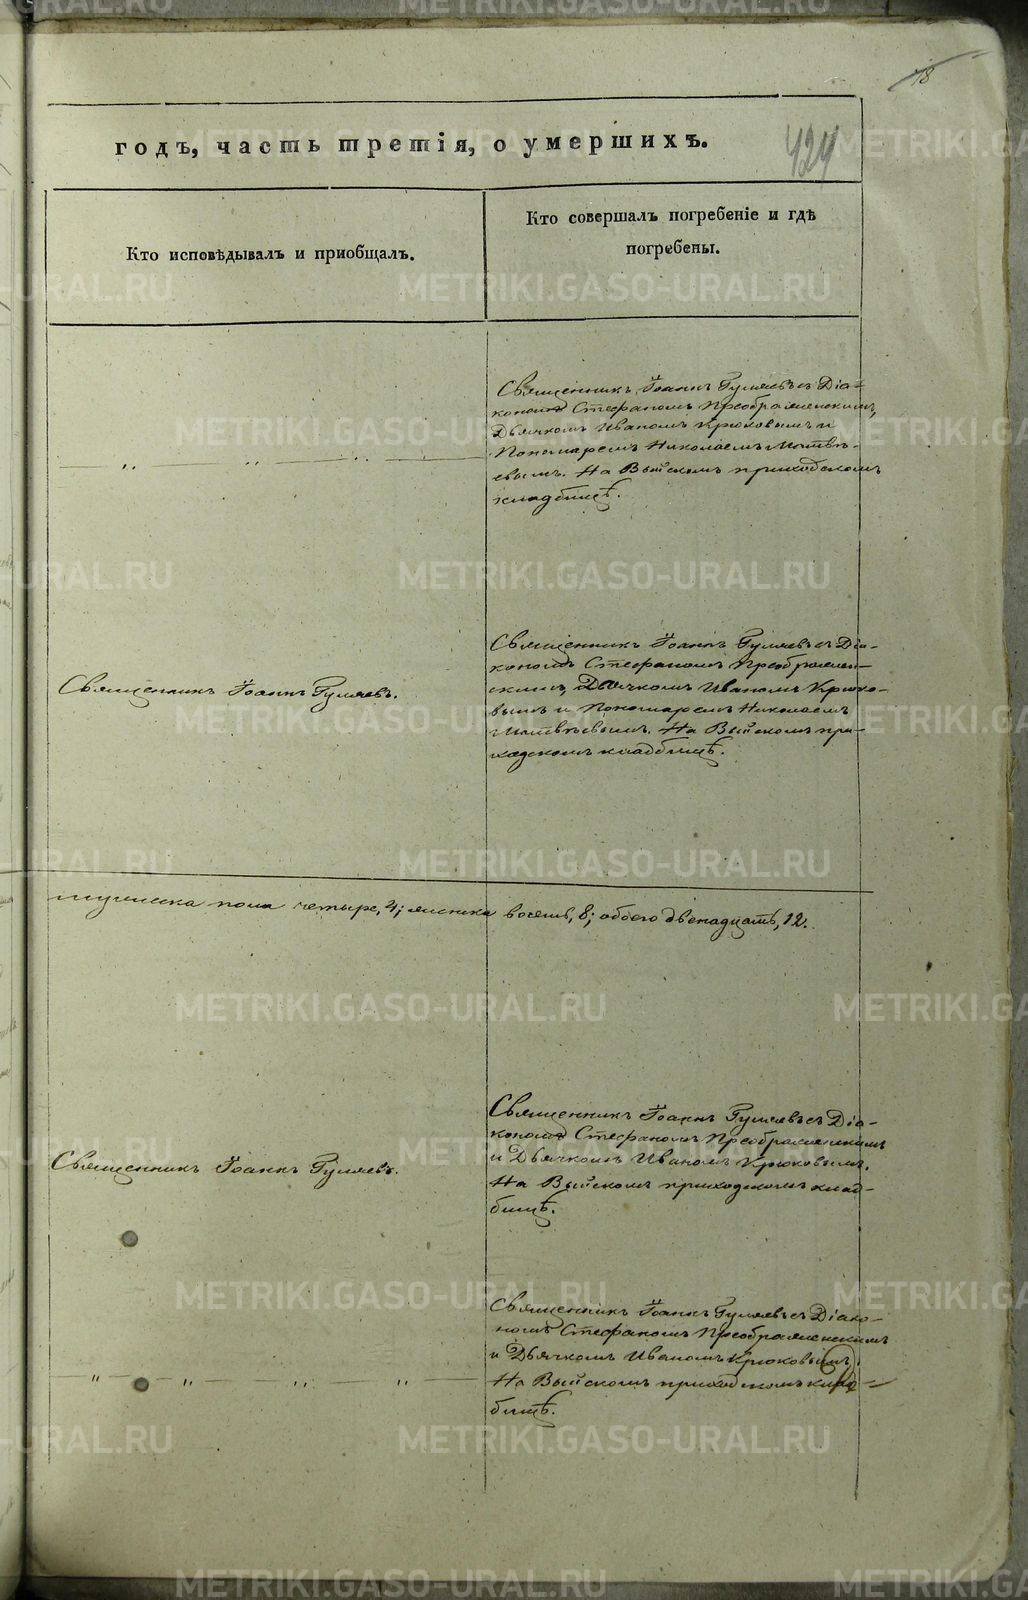 78
годъ, часть третія, о умершихъ.
424
Кто исповѣдывалъ и приобщалъ.
Кто совершалъ погребеніе и гдѣ
погребены.
Священникъ Іоаннъ Гуляевъ съ Діа-
кономъ Стефаномъ Преображенскимъ,
Дьячкомъ Иваномъ Крюковымъ и
Пономаремъ Николаемъ Матвѣ-
евымъ. На Выйскомъ приходскомъ
кладбищѣ.
Священникъ Іоаннъ Гуляевъ.
Священникъ Іоаннъ Гуляевъ съ Діа-
кономъ Стефаномъ Преображен-
скимъ, Дьячкомъ Иваномъ Крюко-
вымъ и Пономаремъ Николаемъ
Матвѣевымъ. На Выйскомъ при-
ходскомъ кладбищѣ.
мужеска пола четыре, 4; женска восемь, 8; обоего двенадцать, 12.
Священникъ Іоаннъ Гуляевъ.
Священникъ Іоаннъ Гуляевъ съ Діа-
кономъ Стефаномъ Преображенскимъ
и Дьячкомъ Иваномъ Крюковымъ.
На Выйскомъ приходскомъ клад-
бищѣ.
Священникъ Іоаннъ Гуляевъ съ Діако-
номъ Стефаномъ Преображенскимъ
и Дьячкомъ Иваномъ Крюковымъ.
На Выйскомъ приходскомъ клад-
бищѣ.
METRIKI.GASO-URAL.RU